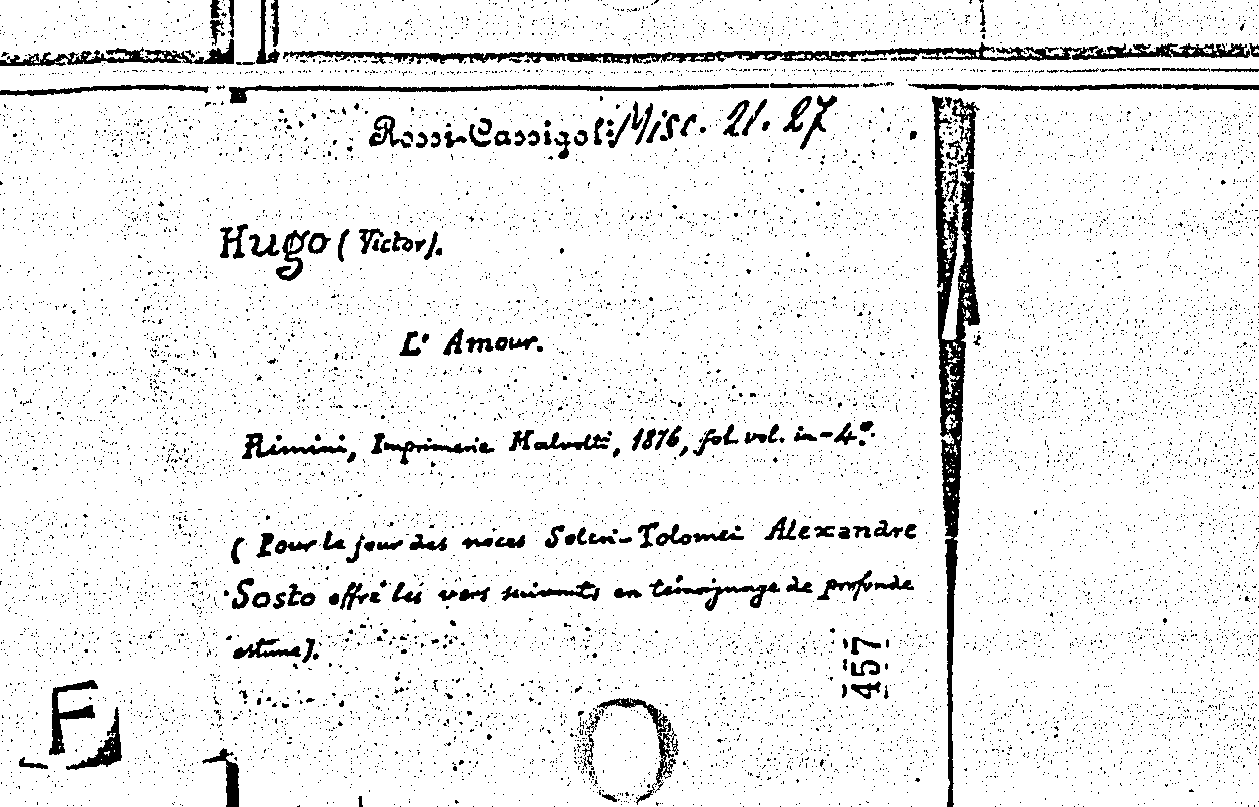 Rossi-Cassigoli Misc. 21. 27
Hugo (Victor).
L' Amour.
Rimini, Imprimerie Malvolti, 1876, fol. vol. in-4º.
(Pour le jour des noces Solcri-Tolomei Alexandre
Sosto offre les vers suivants en témoignage de profonde
estime).
457
F